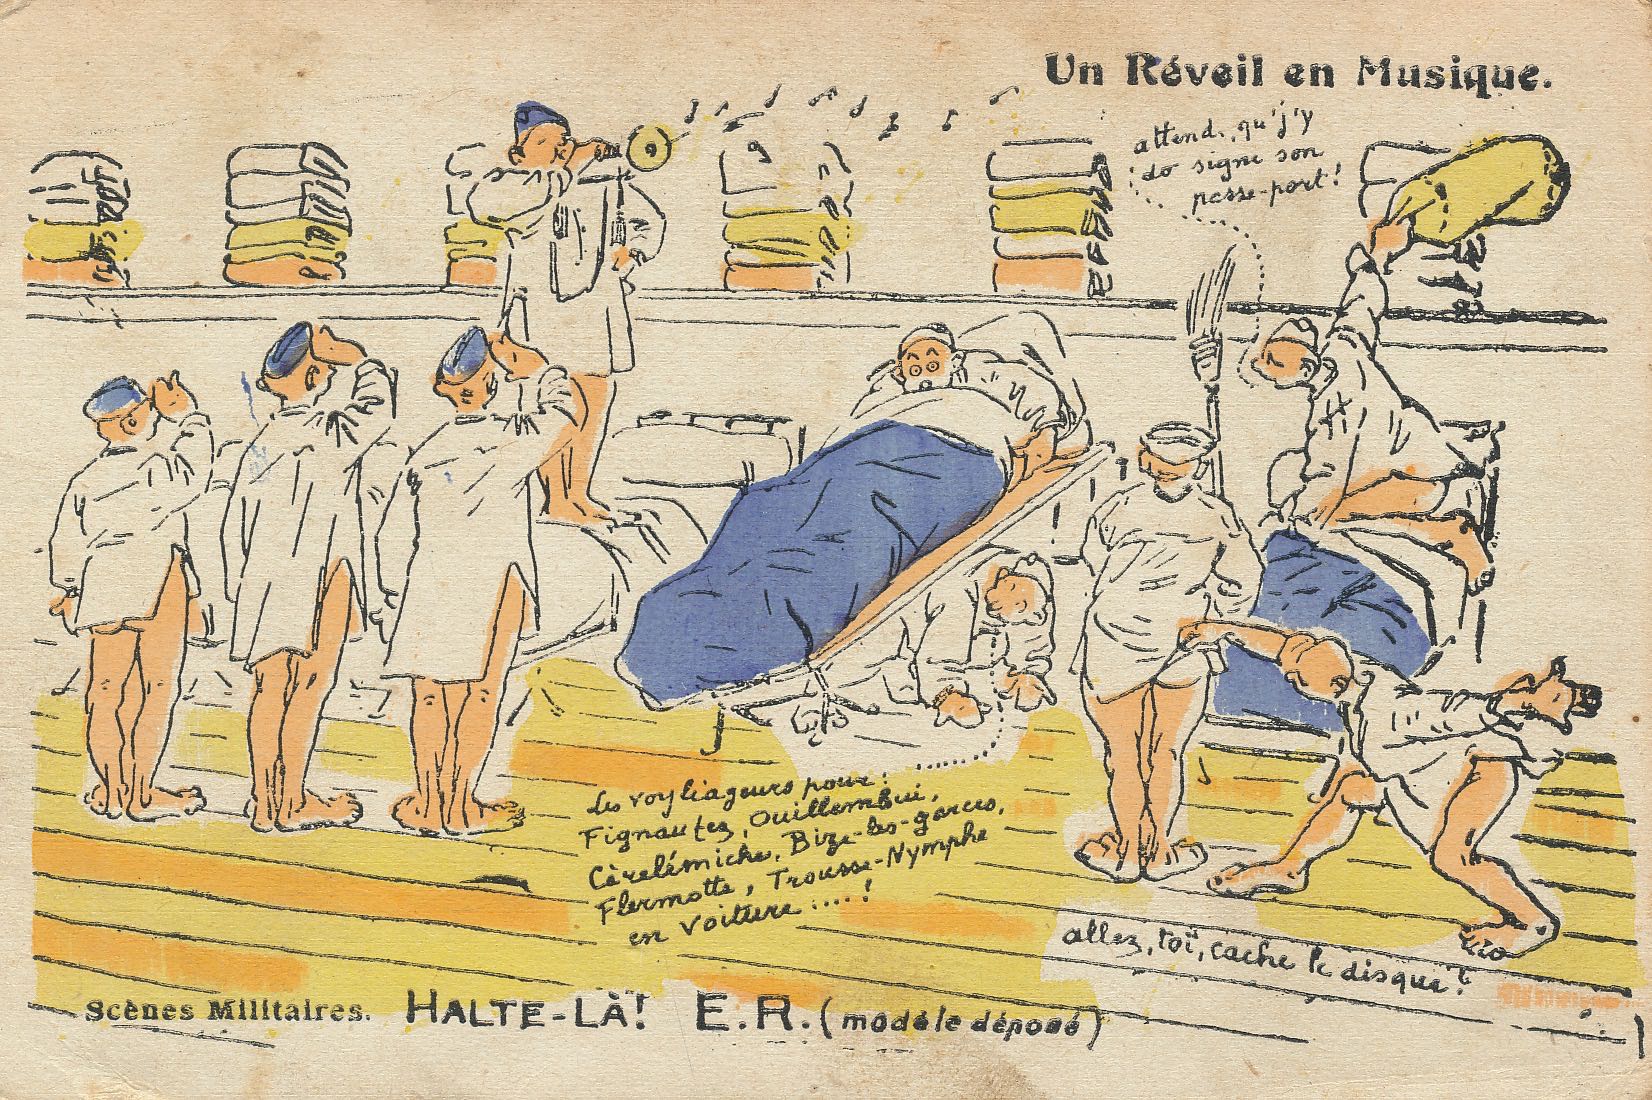 Un Réveil en Musique.
attend, qu'j'y
do signe son
passe-port!
Les voyliageurs pour:
Fignautez, Ouillembui,
Cèrelémiche, Bize-les-garces,
Flermotte, Trousse-Nymphe
en voiture....!
allez, toi, cache le disque!
Scènes Militaires. HALTE-LÀ! E.R. (modèle déposé)